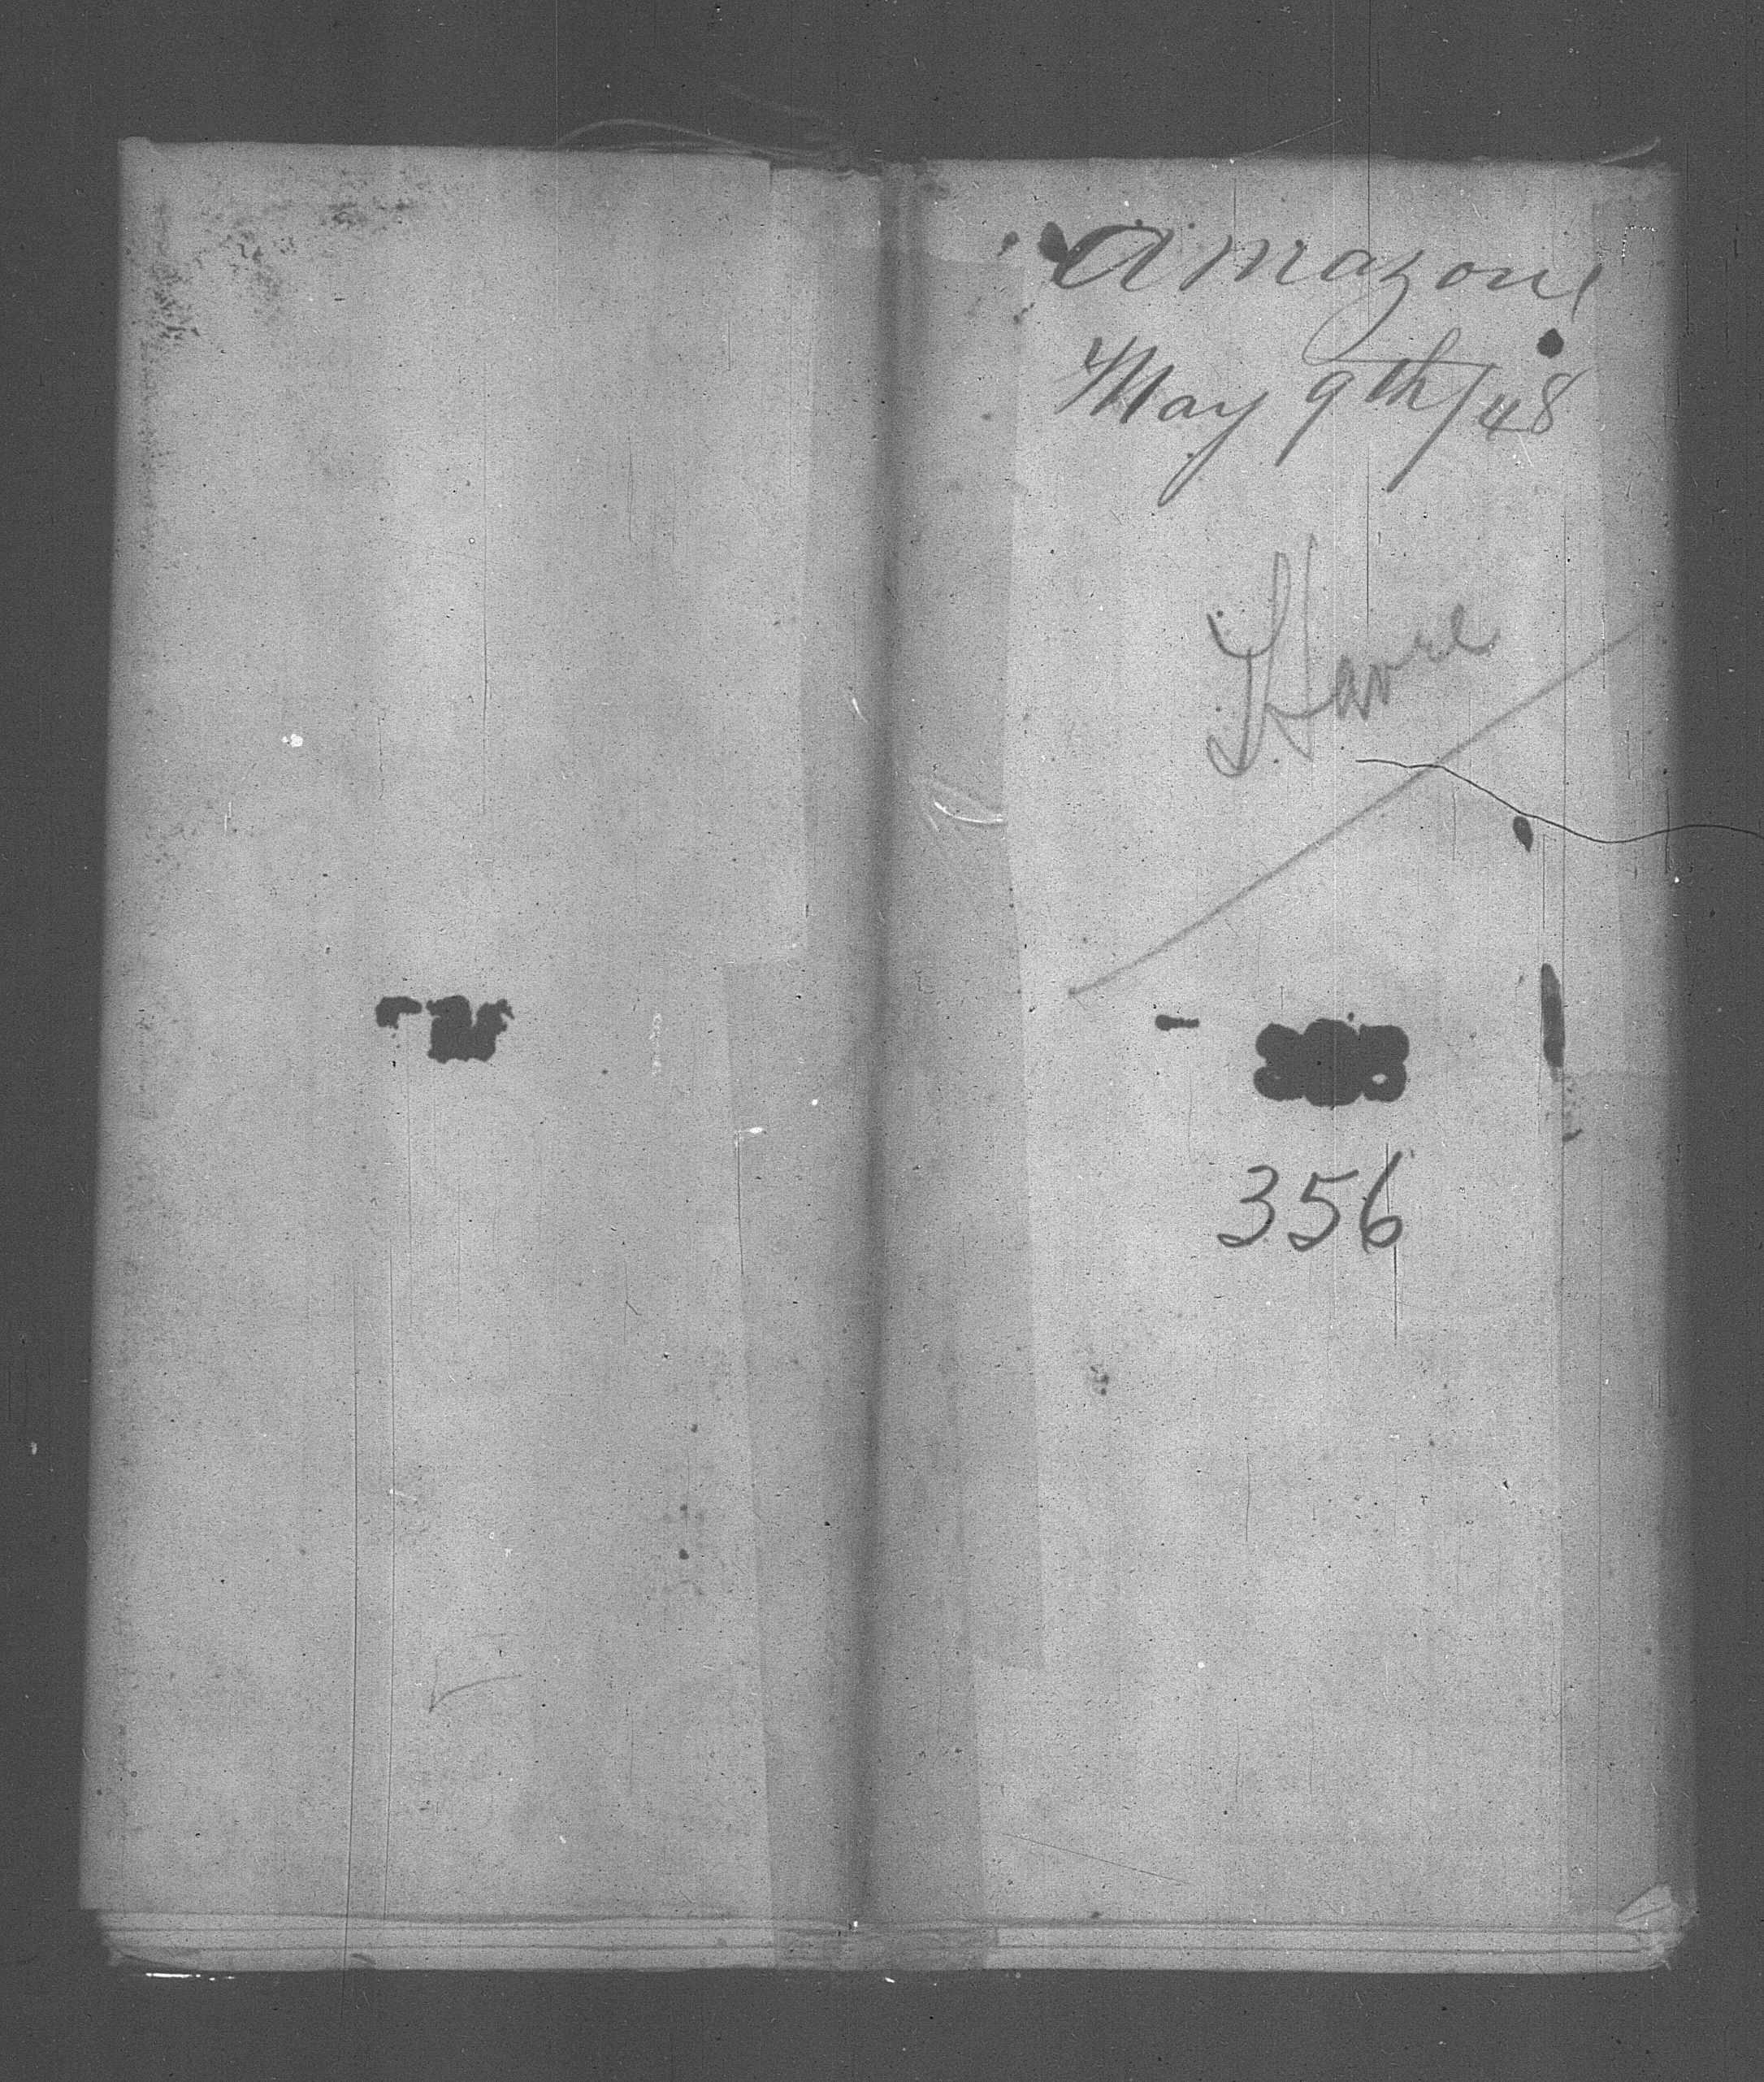 Amazone
May 9th/48
Havre
356